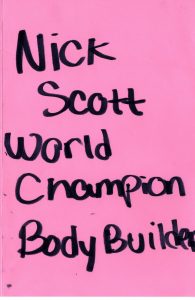 Nick
Scott
World
Champion
Body Builder